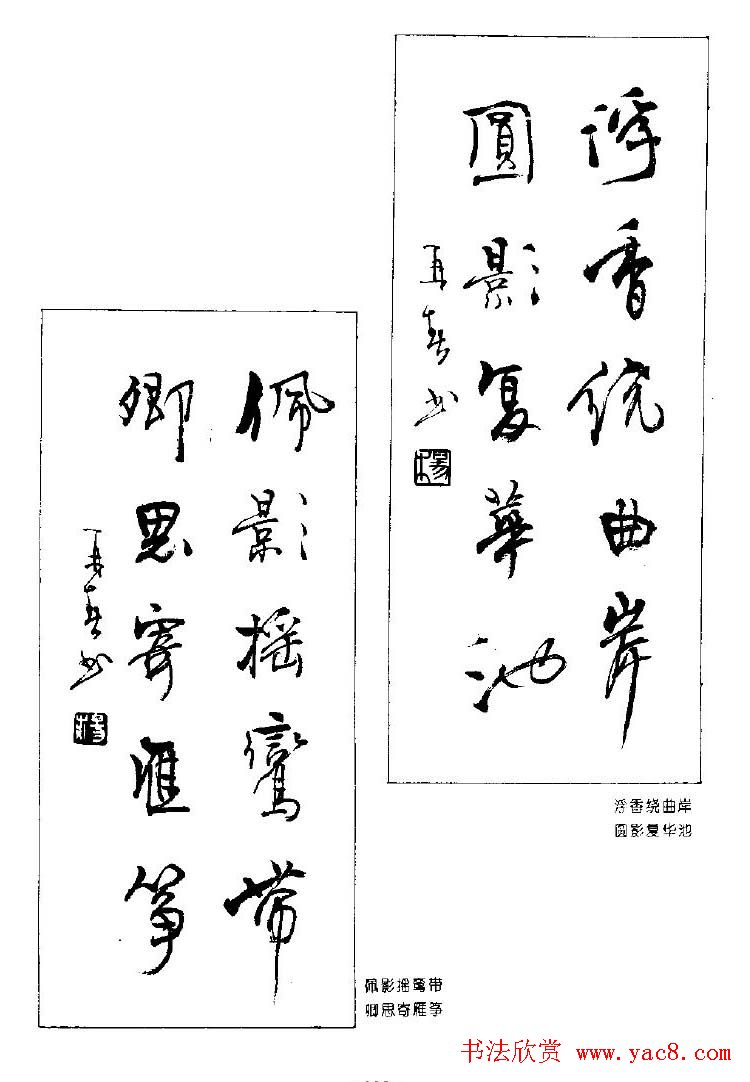 浮香绕曲岸
圓影复華池
再春书
楊
浮香绕曲岸
圆影复华池
佩影摇鸾帶
卿思寄雁筝
再春书
楊
佩影摇鸾带
卿思寄雁筝
书法欣赏 www.yac8.com